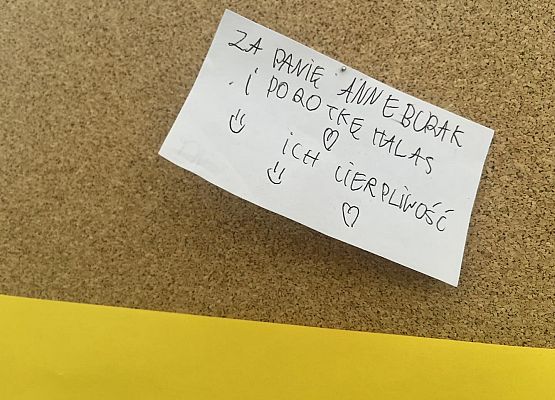 ZA PANIĘ ANNE BURAK
I DOROTKĘ HALAS
ICH CIERPLIWOŚĆ